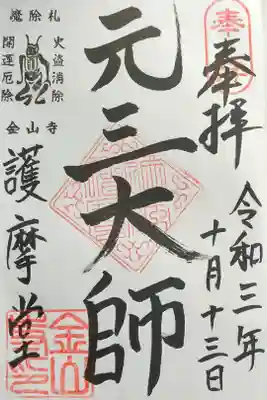 奉
奉拝
令和三年
十月十三日
元三大師
魔除札
火盗消除
開運厄除
金山寺
護摩堂